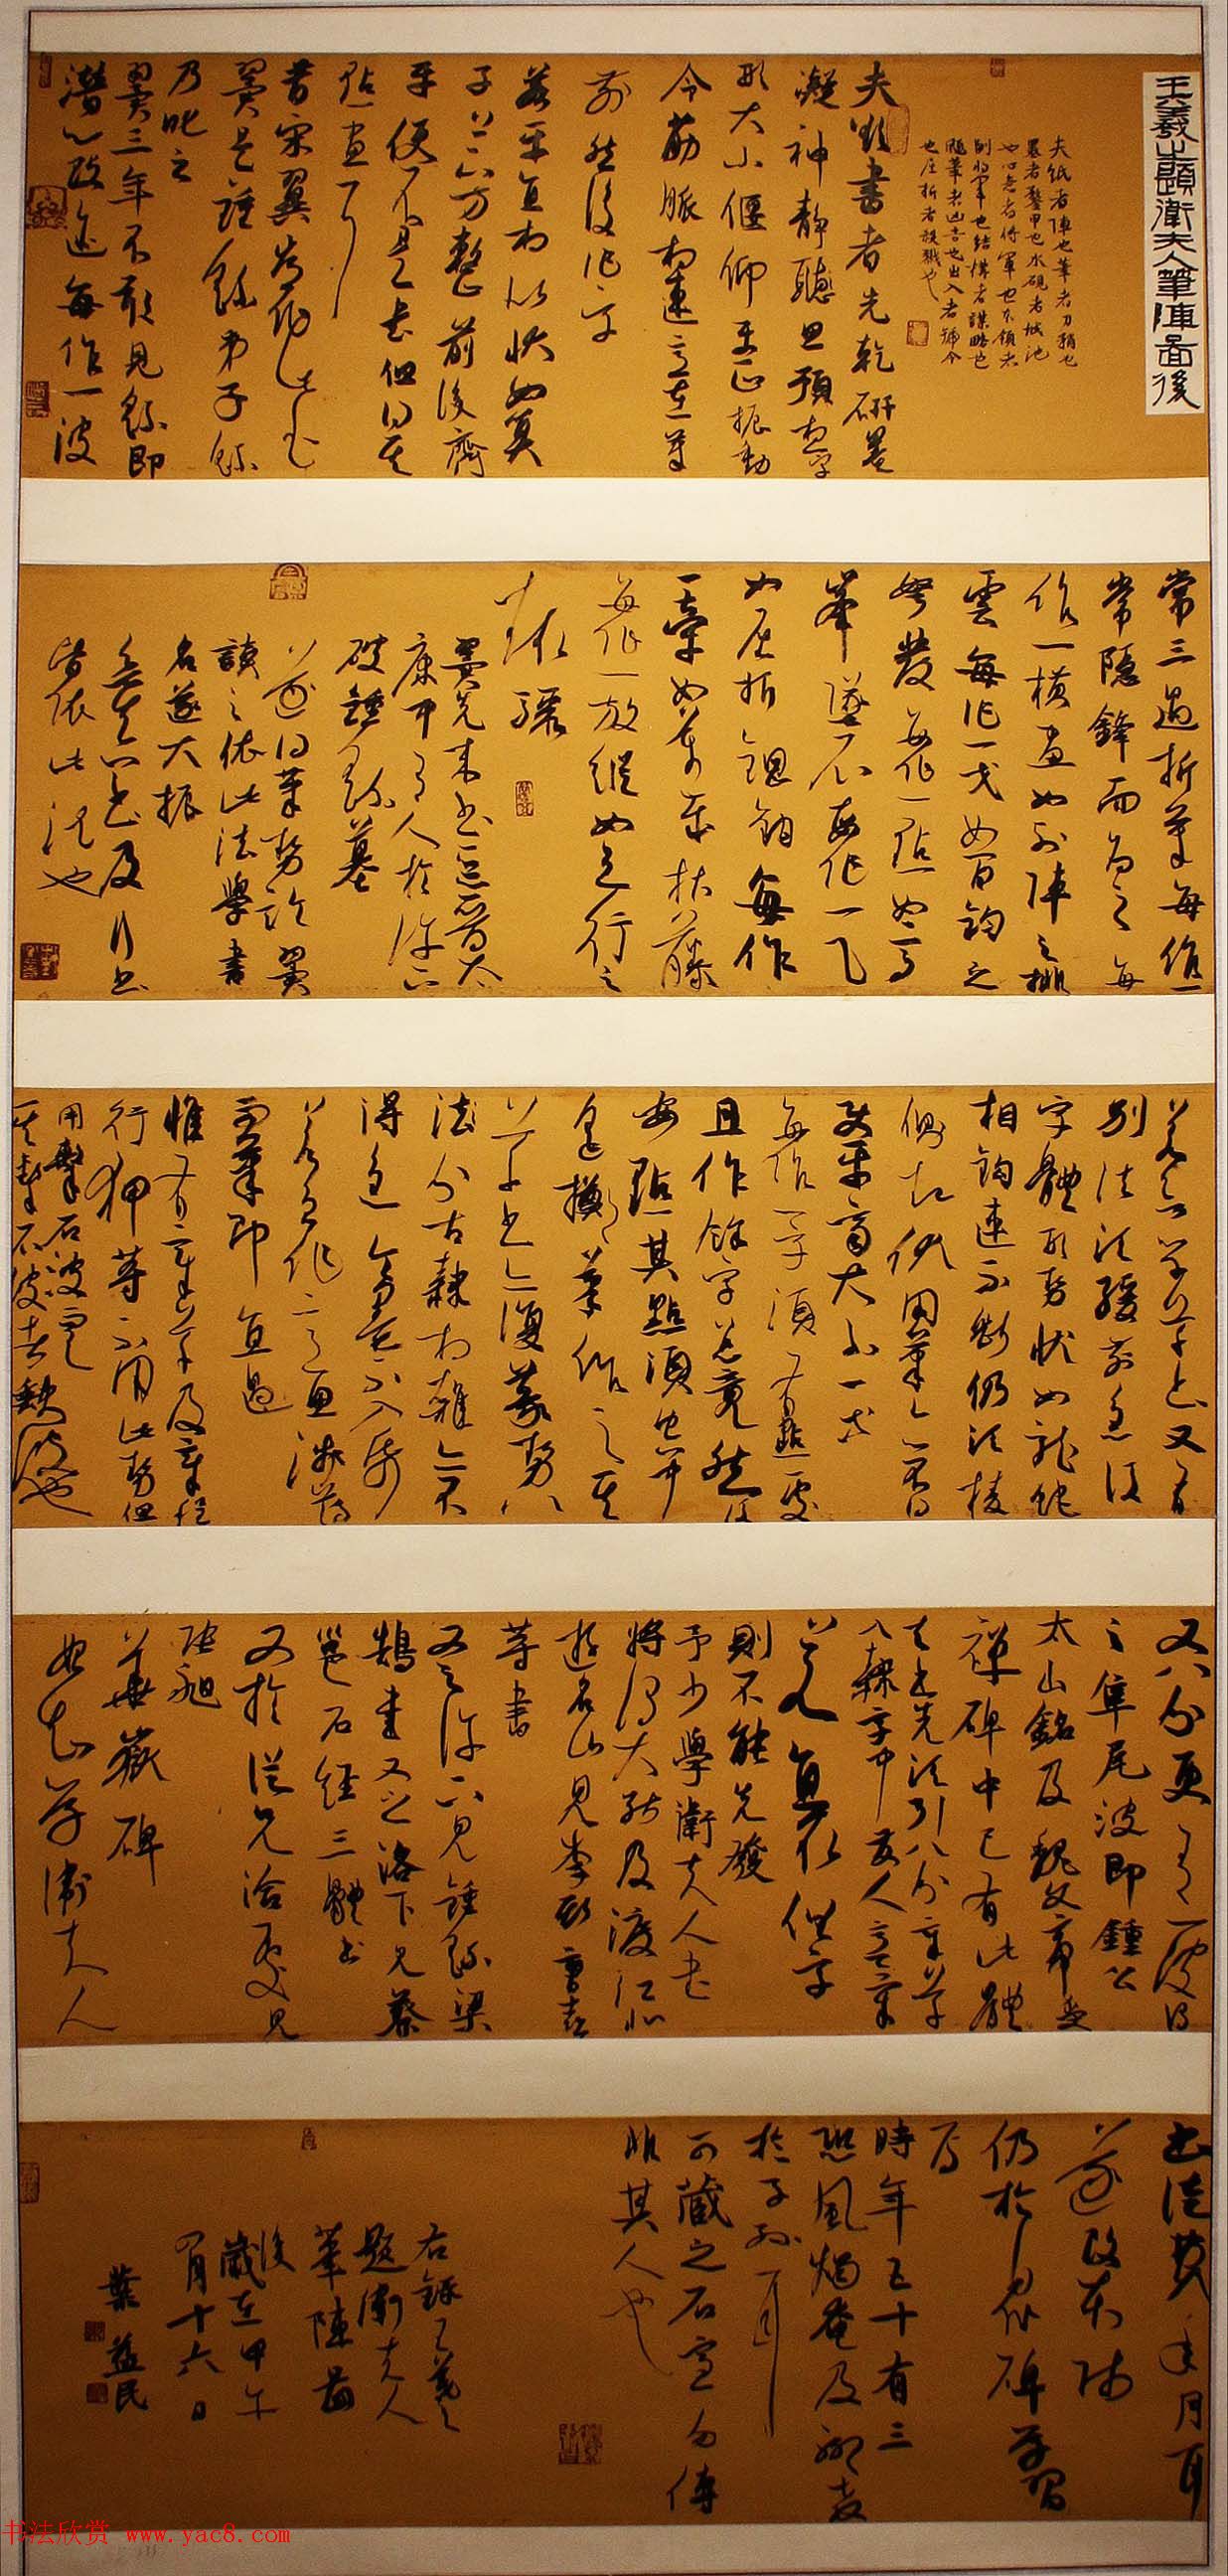 王羲之題衛夫人筆陣圖後
夫紙者陣也筆者刀矟也
墨者鍪甲也水硯者城池
也心意者將軍也本領者
副將軍也結構者謀略也
颺筆者凶吉也出入者號令
也屈折者殺戮也
夫欲書者先乾研墨
凝神靜聽思預想字
形大小偃仰平正振動
令筋脈相連意在筆
前然後作字
若平直相似狀如算
子上下方整前後齊
平便不是書但得其
點畫耳
昔宋翼常作此書
翼是鍾繇弟子繇
乃叱之
翼三年不敢見繇即
潛心改迹每作一波
常三過折筆每作一
常隱鋒而為之每
作一橫畫如列陣之排
雲每作一戈如百鈞之
弩發每作一點如高
峯墜石每作一乁
如屈折鋼鉤每作
一牽如萬歲枯藤
每作一放縱如足行之
趣驟
翼先來書惡晉太
康中有人於許下
破鍾繇墓
遂得筆勢論翼
讀之依此法學書
名遂大振
欲真書及行書
皆依此法也
若欲學草書又有
別法須緩前急後
字體形勢狀如龍蛇
相鉤連不斷仍須棱
側起伏用筆亦不得
使齊平大小一等
每作一字須有點處
且作餘字總竟然後
安點其點須空中
遙擲筆作之其
草書亦復篆勢八
分古隸相雜亦不
得急令墨不入紙
若急作意思淺薄
而筆即直過
惟有章草及章程
行狎等不用此勢但
用擊石波而已
其擊石波者缺波也
又八分更有一波謂
之隼尾波即鍾公
太山銘及魏文帝受
禪碑中已有此體
夫書先須引八分章草
入隸字中發人意氣
若直取俗字
則不能先發
予少學衛夫人書
將謂大能及渡江北
遊名山見李斯曹喜
等書
又之許下見鍾繇梁
鵠書又之洛下見蔡
邕石經三體書
又於從兄洽處見
張昶
華嶽碑
始知學衛夫人
書徒費年月耳
遂改本師
仍於衆碑學習
焉
時年五十有三
恐風燭奄及聊遺
於子孫耳
可藏之石室勿傳
非其人也
右錄王羲之
題衛夫人
筆陣圖
後
歲在甲午
四月十六日
葉益民
书法欣赏 www.yac8.com